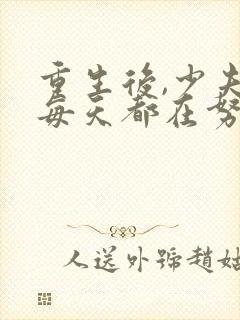 重生後,少夫
每天都在努
人送外號趙姑